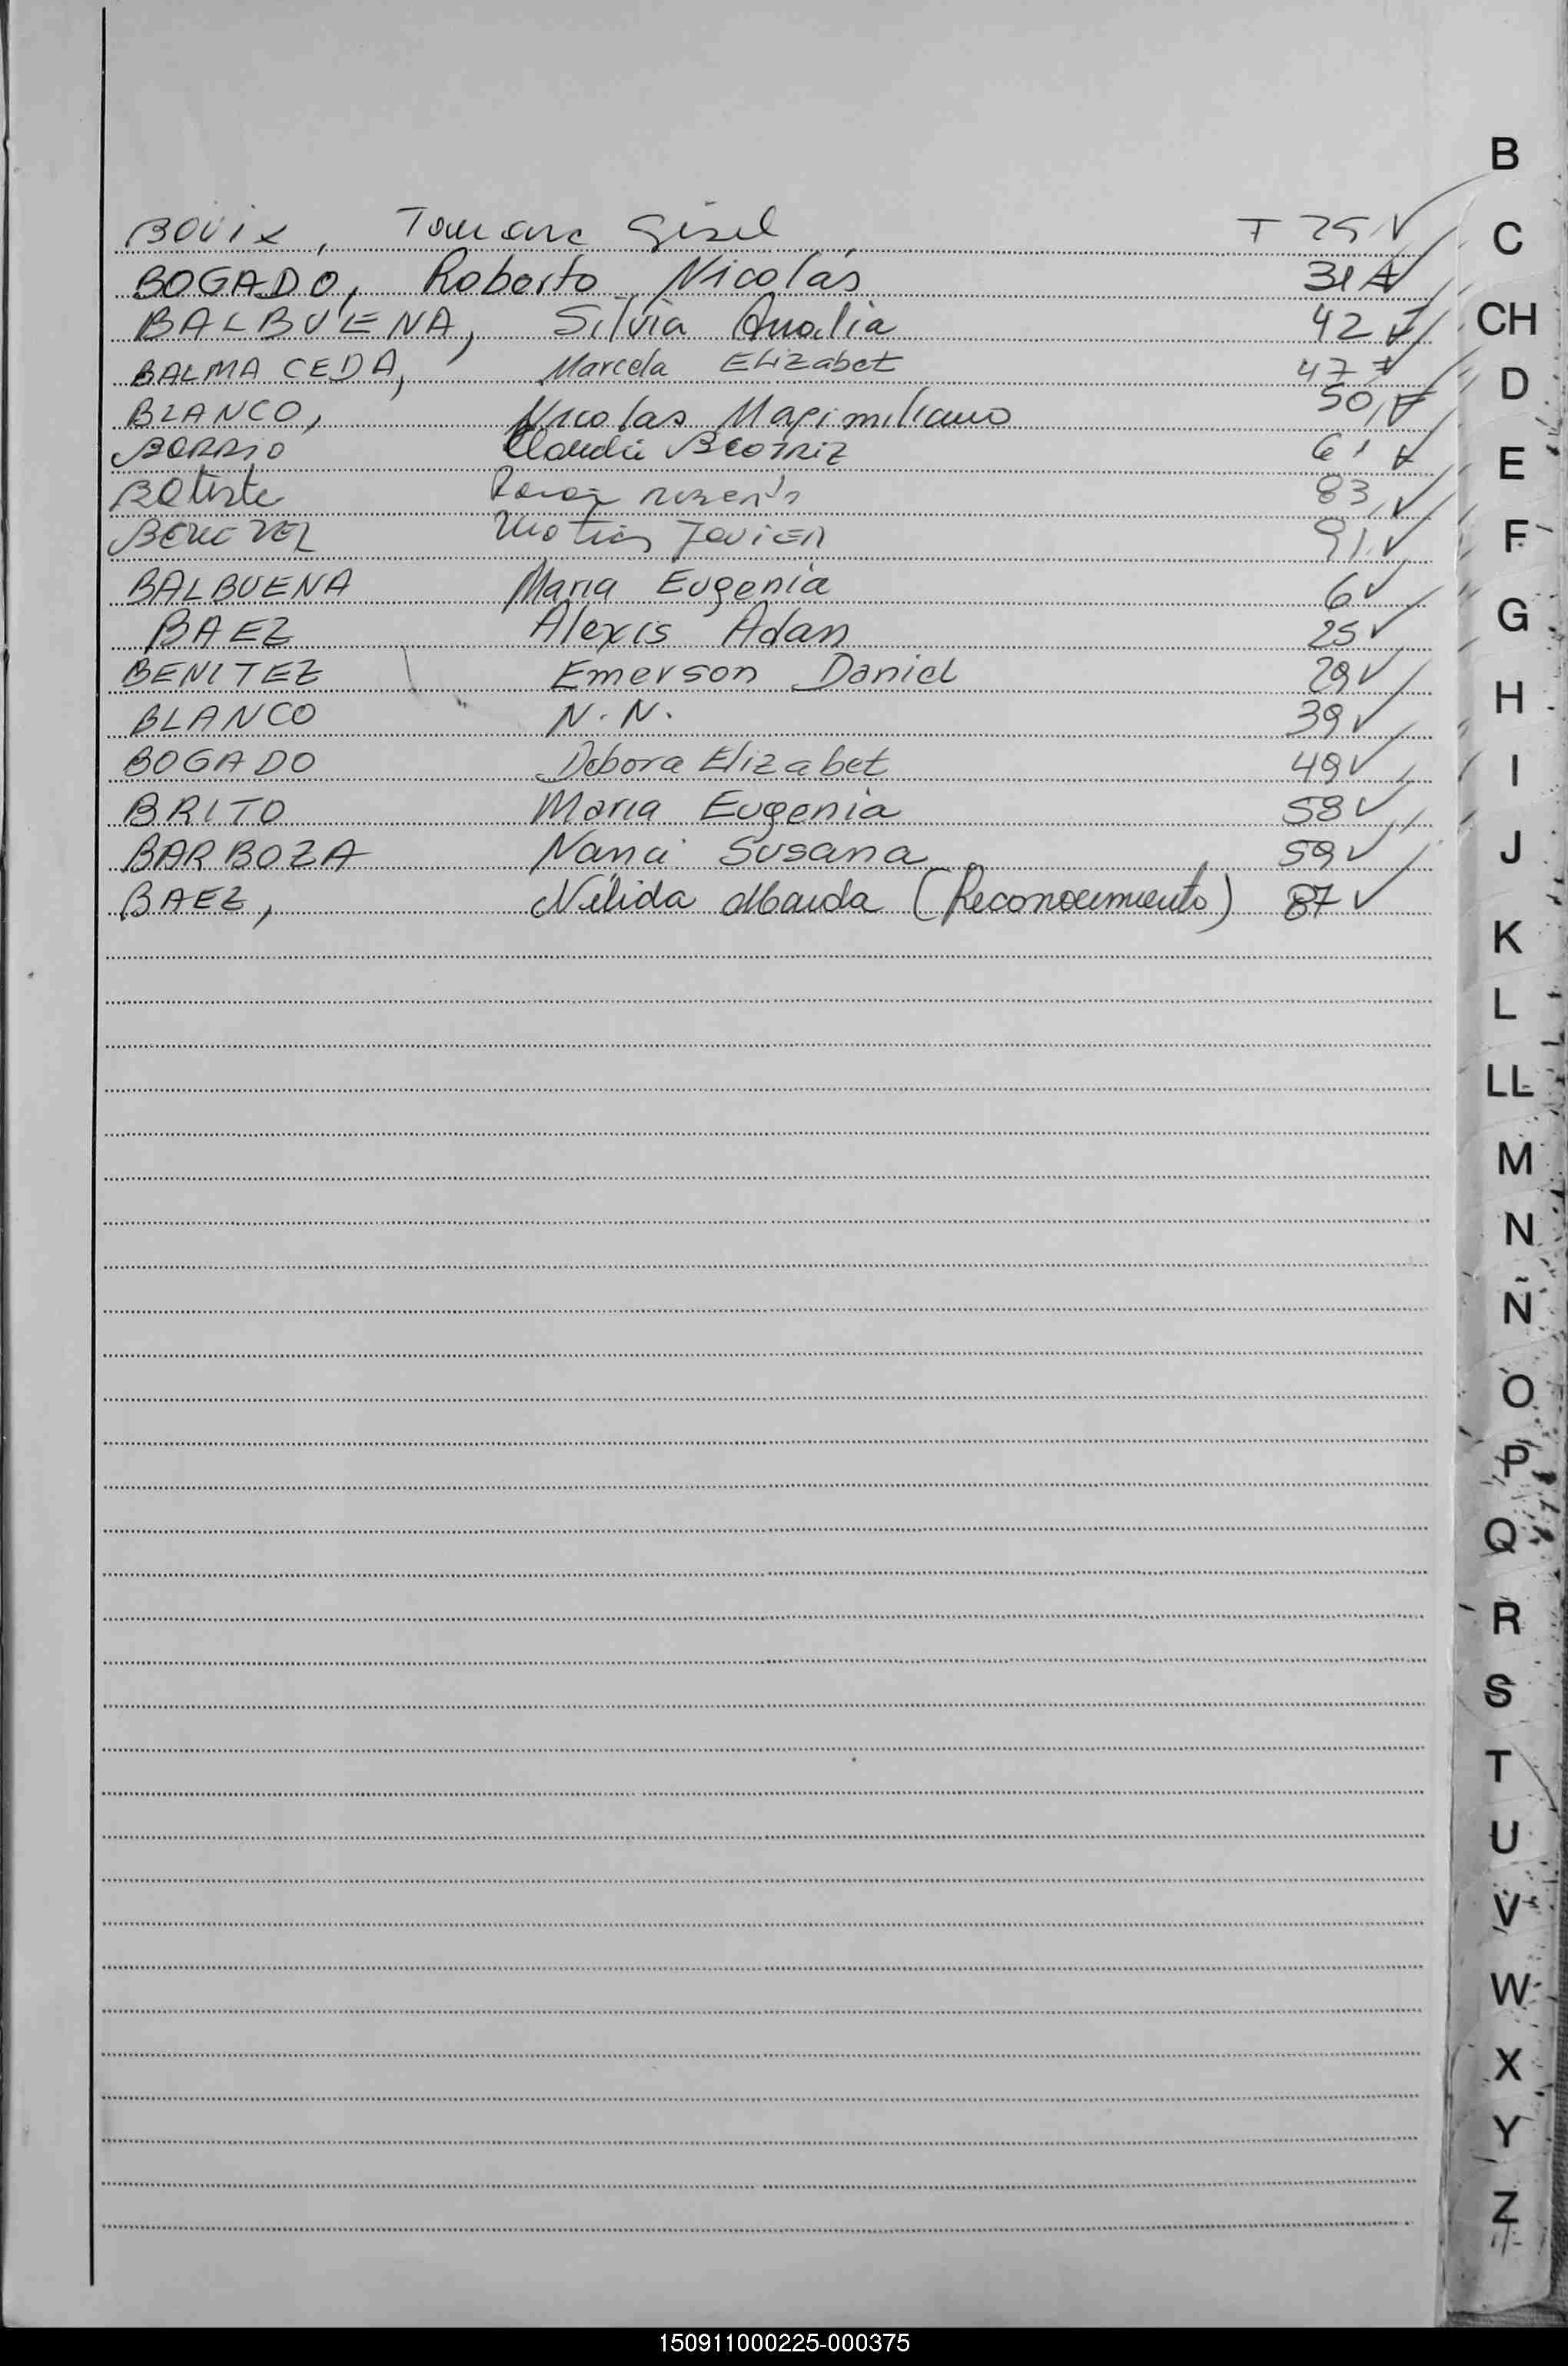 BOVIX, Tamara Gisel T 25 ✓
BOGADO, Roberto Nicolás 31 ✓
BALBUENA, Silvia Analia 42 ✓
BALMACEDA, Marcela Elizabet 47 ✓
BLANCO, Nicolas Maximiliano 50 ✓
Claudia Beatriz 61 ✓
Batiste 83 ✓
Matias Javier 91 ✓
BALBUENA Maria Eugenia 6 ✓
BAEZ Alexis Adan 25 ✓
BENITEZ Emerson Daniel 29 ✓
BLANCO N.N. 39 ✓
BOGADO Debora Elizabet 49 ✓
BRITO Maria Eugenia 58 ✓
BARBOZA Nanci Susana 59 ✓
BAEZ, Nélida (Reconocimiento) 87 ✓
B
C
CH
D
E
F
G
H
I
J
K
L
LL
M
N
Ñ
O
P
Q
R
S
T
U
V
W
X
Y
Z
150911000225-000375